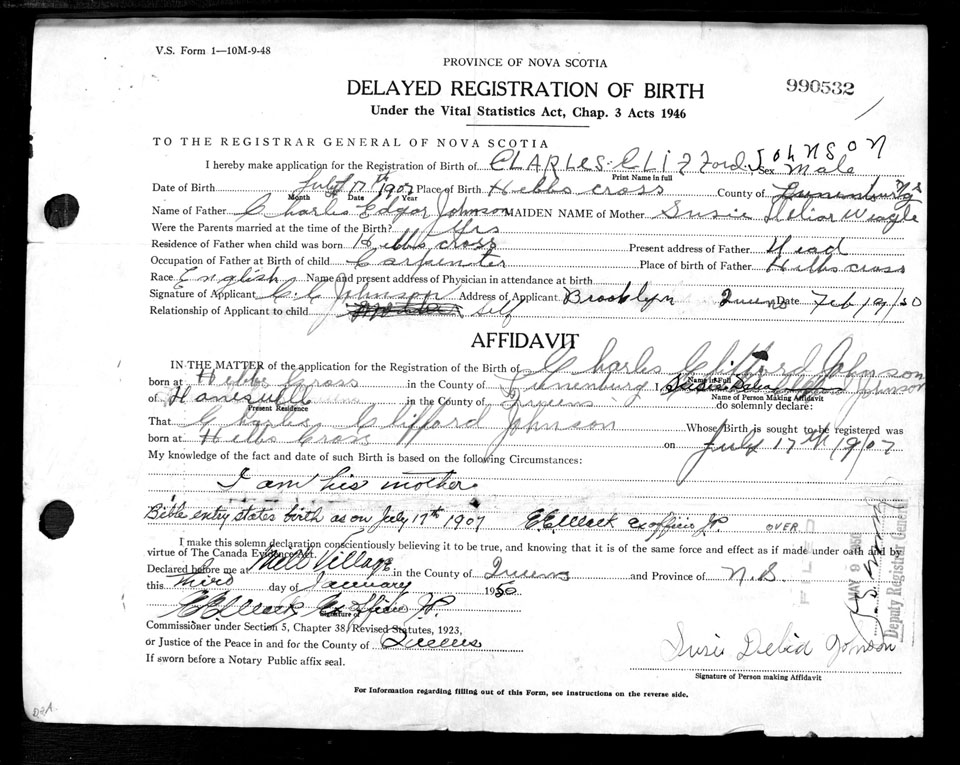 V.S. Form 1—10M-9-48
PROVINCE OF NOVA SCOTIA
DELAYED REGISTRATION OF BIRTH
990532
Under the Vital Statistics Act, Chap. 3 Acts 1946
TO THE REGISTRAR GENERAL OF NOVA SCOTIA
I hereby make application for the Registration of Birth of CHARLES CLIFFord JOHNSON Sex Male
Print Name in full
Date of Birth July 17th 1907 Place of Birth Hebbs cross County of Lunenburg
Month Date Year
Name of Father Charles Edgar Johnson MAIDEN NAME of Mother Susie Weagle
Were the Parents married at the time of the Birth? Yes
Residence of Father when child was born Hebbs cross Present address of Father
Occupation of Father at Birth of child Carpenter Place of birth of Father Hebbs cross
Race English Name and present address of Physician in attendance at birth
Signature of Applicant C.C Johnson Address of Applicant Brooklyn Queens Date Feb 19/50
Relationship of Applicant to child Self
AFFIDAVIT
IN THE MATTER of the application for the Registration of the Birth of Charles Clifford Johnson
Name in Full
born at Hebbs Cross in the County of Lunenburg I, Johnson
Name of Person Making Affidavit
of in the County of Queens do solemnly declare:
Present Residence
That Charles Clifford Johnson Whose Birth is sought to be registered was
born at Hebbs Cross on July 17th 1907
My knowledge of the fact and date of such Birth is based on the following Circumstances:
I am his mother
Bible entry states birth as on July 17th 1907 ex officio JP OVER
I make this solemn declaration conscientiously believing it to be true, and knowing that it is of the same force and effect as if made under oath and by
virtue of The Canada Evidence Act.
Declared before me at Mill Village in the County of Queens and Province of N.S.
this Third day of January 1950
Ex Officio JP.
Signature of
Commissioner under Section 5, Chapter 38, Revised Statutes, 1923,
or Justice of the Peace in and for the County of Queens
If sworn before a Notary Public affix seal.
Susie Johnson
Signature of Person making Affidavit
FILED
MAY 9 1950
Deputy Registrar General
For Information regarding filling out of this Form, see instructions on the reverse side.